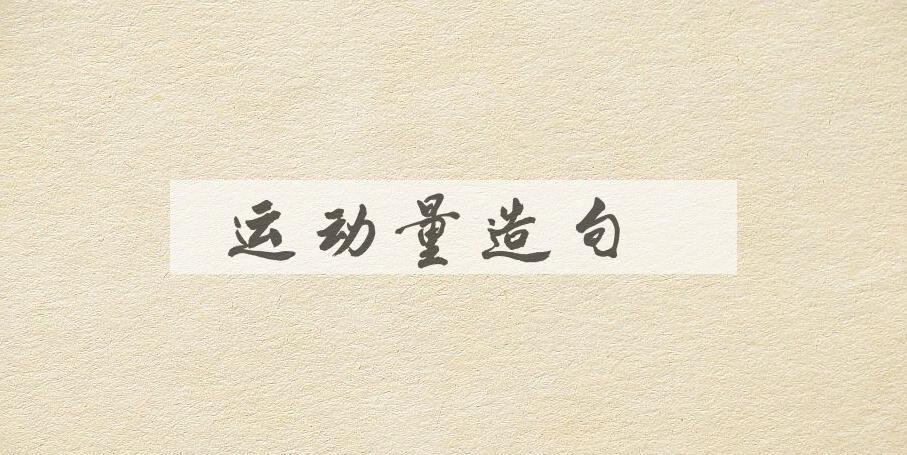 运动量造句